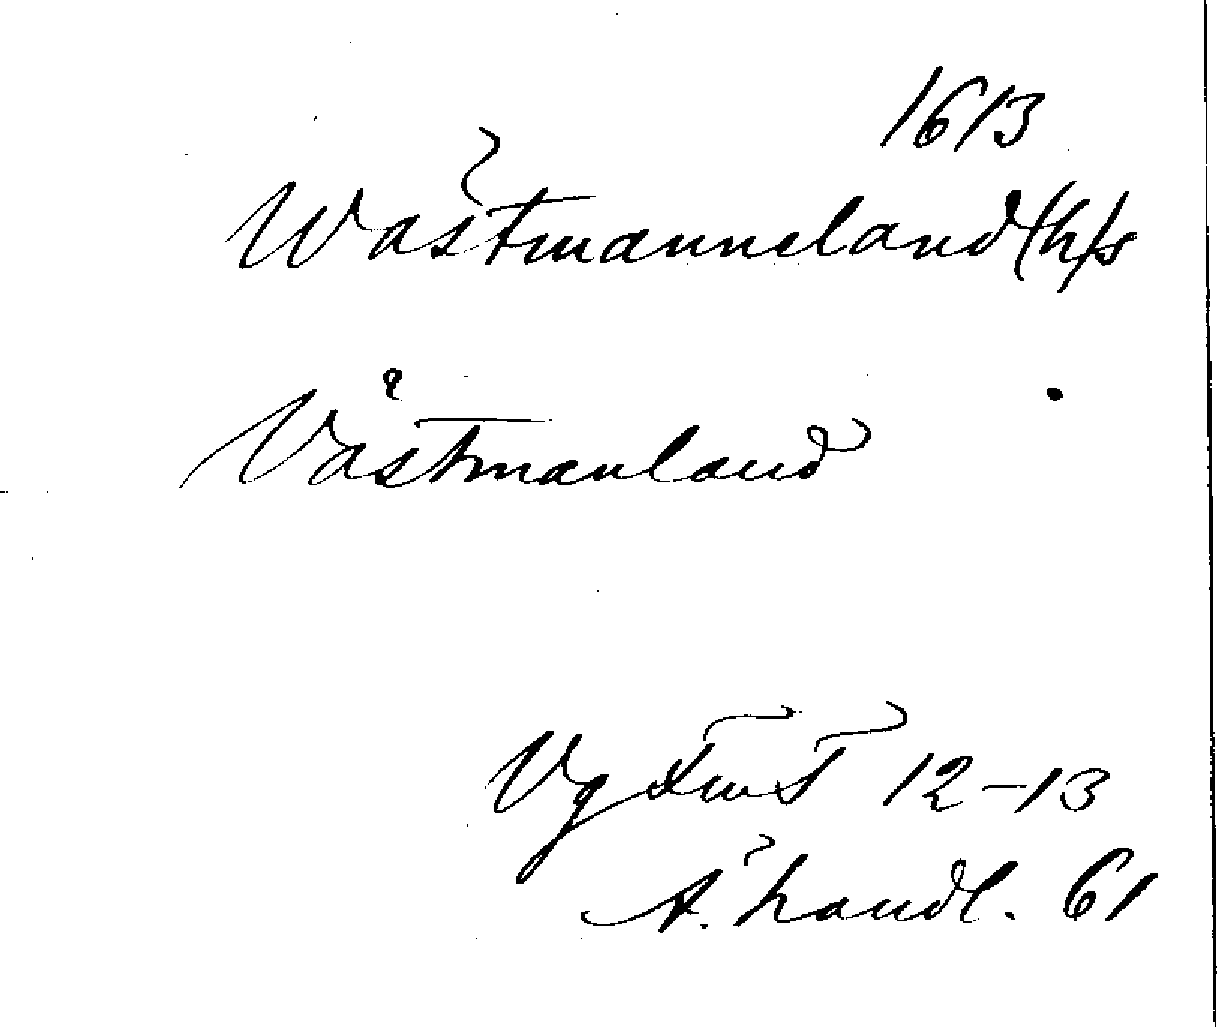 1613
Wästmanneland (h/s
Västmanland
Vg FmT 12-13
Ä. handl. 61